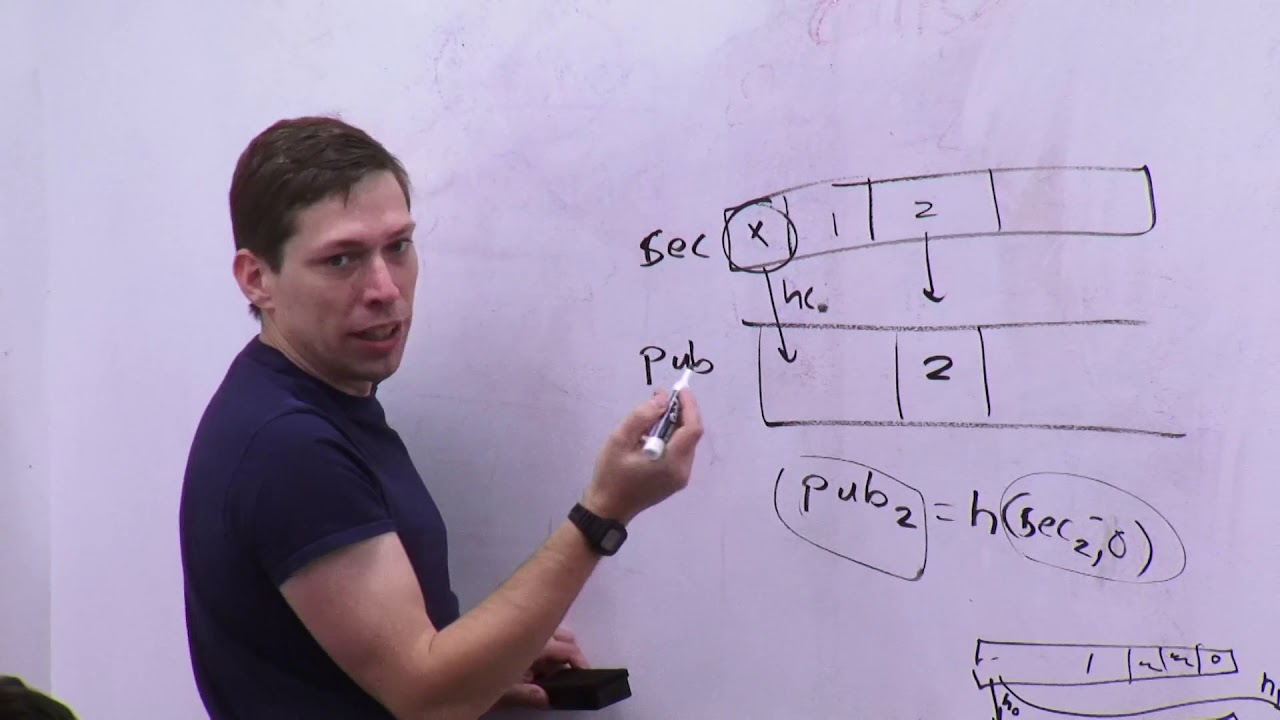 sec x 1 2
hc
pub 2
pub₂ = h(sec₂,0)
1 0
h₀